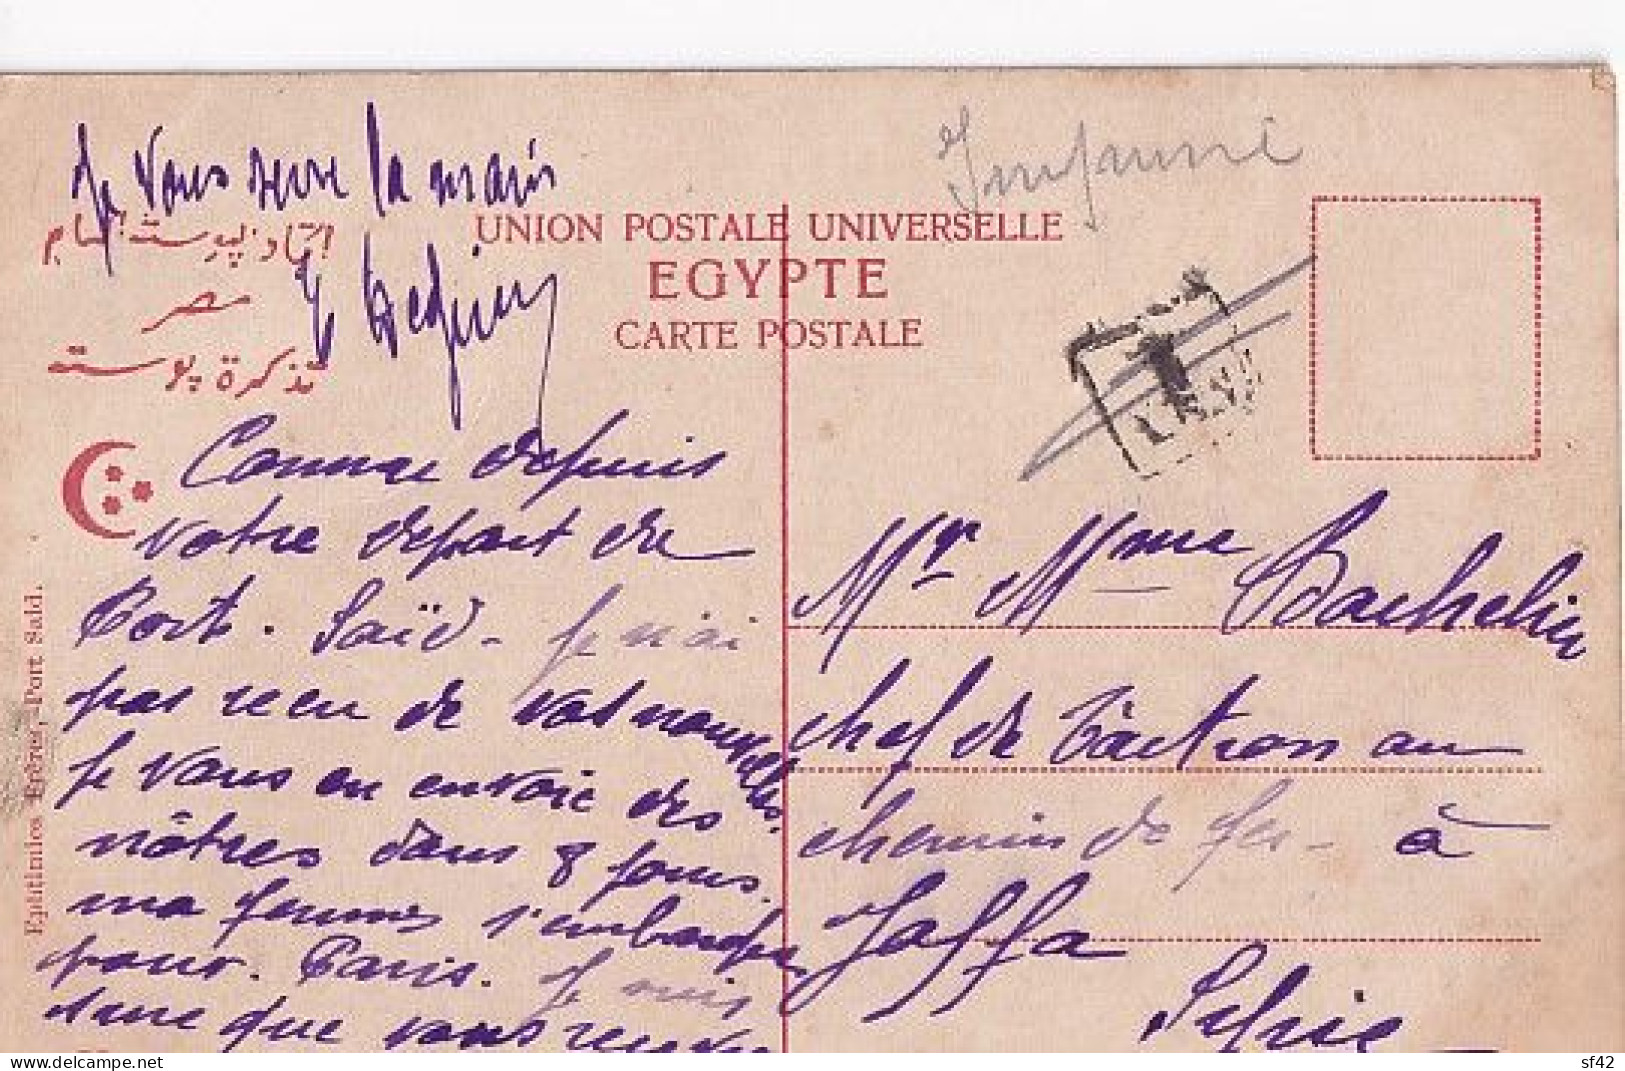 Je vous serre la main
اتحاد پوست
مصر
تذكرة پوستة
UNION POSTALE UNIVERSELLE
EGYPTE
CARTE POSTALE
T
Comme depuis
votre depart de
Port. Saïd - je n'ai
pas recu de vos nouvelles.
Je vous en envoie des
nôtres dans 8 jours
ma femme s'embarque
pour. Paris. Je
que vous
Mr Mme Bachelin
chef de Traction au
chemin de fer - à
Jaffa
Syrie
Ephtimios Frères, Port Said.
delcampe.net
sf42